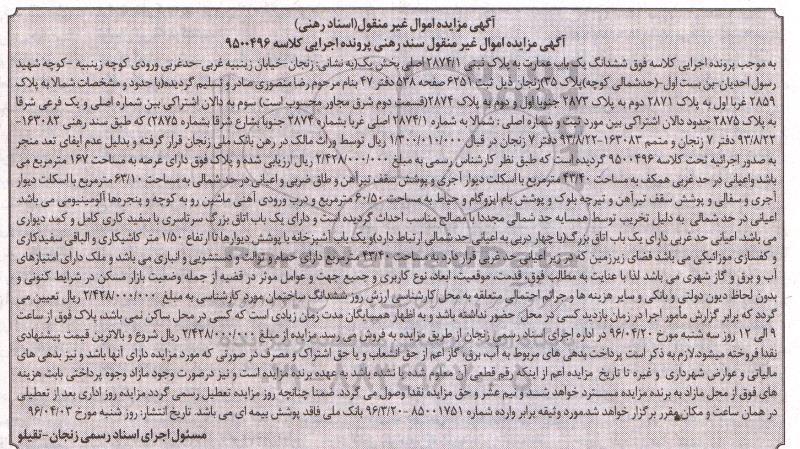 آگهی مزایده اموال غیر منقول(اسناد رهنی)
آگهی مزایده اموال غیر منقول سند رهنی پرونده اجرایی کلاسه ۹۵۰۰۴۹۶
به موجب پرونده اجرایی کلاسه فوق ششدانگ یک باب عمارت به پلاک ثبتی ۲۸۷۴/۱ اصلی بخش یک(به نشانی: زنجان-خیابان زینبیه غربی-حدغربی ورودی کوچه زینبیه -کوچه شهید
رسول احدیان-بن بست اول-(حدشمالی کوچه)پلاک ۳۵)زنجان ذیل ثبت ۶۲۵۱ صفحه ۵۳۸ دفتر ۴۷ بنام مرحوم رضا منصوری صادر و تسلیم گردیده(با حدود و مشخصات شمالا به پلاک
۲۸۵۹ غربا اول به پلاک ۲۸۷۱ دوم به پلاک ۲۸۷۳ جنوبا اول و دوم به پلاک ۲۸۷۴(قسمت دوم شرق مجاور محسوب است) سوم به دالان اشتراکی بین شماره اصلی و یک فرعی شرقا
به پلاک ۲۸۷۵ حدود دالان اشتراکی بین مورد ثبت و شماره اصلی : شمالا به شماره ۲۸۷۴/۱ اصلی غربا بشماره ۲۸۷۴ جنوبا بشارع شرقا بشماره ۲۸۷۵) که طبق سند رهنی ۱۶۳۰۸۲-
۹۳/۸/۲۲ دفتر ۷ زنجان و متمم ۱۶۳۰۸۳-۹۳/۸/۲۲ دفتر ۷ زنجان در قبال ۱/۳۰۰/۰۱۰/۰۰۰ ریال توسط وراث مالک در رهن بانک ملی زنجان قرار گرفته و بدلیل عدم ایفای تعهد منجر
به صدور اجرائیه تحت کلاسه ۹۵۰۰۴۹۶ گردیده است که طبق نظر کارشناس رسمی به مبلغ ۲/۴۲۸/۰۰۰/۰۰۰ ریال ارزیابی شده و پلاک فوق دارای عرصه به مساحت ۱۶۷ مترمربع می
باشد واعیانی در حد غربی همکف به مساحت ۴۳/۴۰ مترمربع با اسکلت دیوار آجری و پوشش سقف تیرآهن و طاق ضربی و اعیانی در حد شمالی به مساحت ۶۳/۱۰ مترمربع با اسکلت دیوار
آجری و سفالی و پوشش سقف تیرآهن و تیرچه بلوک و پوشش بام ایزوگام و حیاط به مساحت ۶۰/۵۰ مترمربع و درب ورودی آهنی ماشین رو به کوچه و پنجره‌ها آلومینیومی می باشد.
اعیانی در حد شمالی به دلیل تخریب توسط همسایه حد شمالی مجددا با مصالح مناسب احداث گردیده است و دارای یک باب اتاق بزرگ سرتاسری با سفید کاری کامل و کمد دیواری
می باشد. اعیانی حد غربی دارای یک باب اتاق بزرگ(با چهار دربی به اعیانی حد شمالی ارتباط دارد)و یک باب آشپزخانه با پوشش دیوارها تا ارتفاع ۱/۵۰ متر کاشیکاری و الباقی سفیدکاری
و کفسازی موزائیکی می باشد فضای زیرزمین که در زیر اعیانی حد غربی قرار دارد به مساحت ۴۳/۴۰ مترمربع دارای حمام و توالت و دستشویی و انباری می باشد و ملک دارای امتیازهای
آب و برق و گاز شهری می باشد لذا با عنایت به مطالب فوق، قدمت موقعیت، ابعاد، نوع کاربری و جمیع جهت و عوامل موثر در قضیه از جمله وضعیت بازار مسکن در شرایط کنونی و
بدون لحاظ دیون دولتی و بانکی و سایر هزینه ها و جرائم احتمالی متعلقه به محل/کارشناسی ارزش روز ششدانگ ساختمان مورد کارشناسی به مبلغ ۲/۴۲۸/۰۰۰/۰۰۰ ریال تعیین می
گردد که برابر گزارش مأمور اجرا در زمان بازدید کسی در محل حضور نداشته باشد و به اظهار همسایگان مدت زمان زیادی است که کسی در محل ساکن نمی باشد، پلاک فوق از ساعت
۹ الی ۱۲ روز سه شنبه مورخ ۹۶/۰۴/۲۰ در اداره اجرای اسناد رسمی زنجان از طریق مزایده به فروش می رسد. مزایده از مبلغ ۲/۴۲۸/۰۰۰/۰۰۰ ریال شروع و بالاترین قیمت پیشنهادی
نقدا فروخته میشود.لازم به ذکر است پرداخت بدهی های مربوط به آب، برق، گاز اعم از حق انشعاب و یا حق اشتراک و مصرف در صورتی که مورد مزایده دارای آنها باشد و نیز بدهی های
مالیاتی و عوارض شهرداری و غیره تا تاریخ مزایده اعم از اینکه رقم قطعی آن معلوم شده یا نشده باشد به عهده برنده مزایده است و نیز درصورت وجود مازاد وجوه پرداختی بابت هزینه
های فوق از محل مازاد به برنده مزایده مسترد خواهد شد و نیم عشر و حق مزایده نقدا وصول می گردد. ضمنا چنانچه روز مزایده تعطیل رسمی گردد مزایده روز اداری بعد از تعطیلی
در همان ساعت و مکان مقرر برگزار خواهد شد.مورد وثیقه برابر وارده شماره ۸۵۰۰۱۷۵۱-۹۶/۳/۲۰ بانک ملی فاقد پوشش بیمه ای می باشد. تاریخ انتشار: روز شنبه مورخ ۹۶/۰۴/۰۳
مسئول اجرای اسناد رسمی زنجان-تقیلو